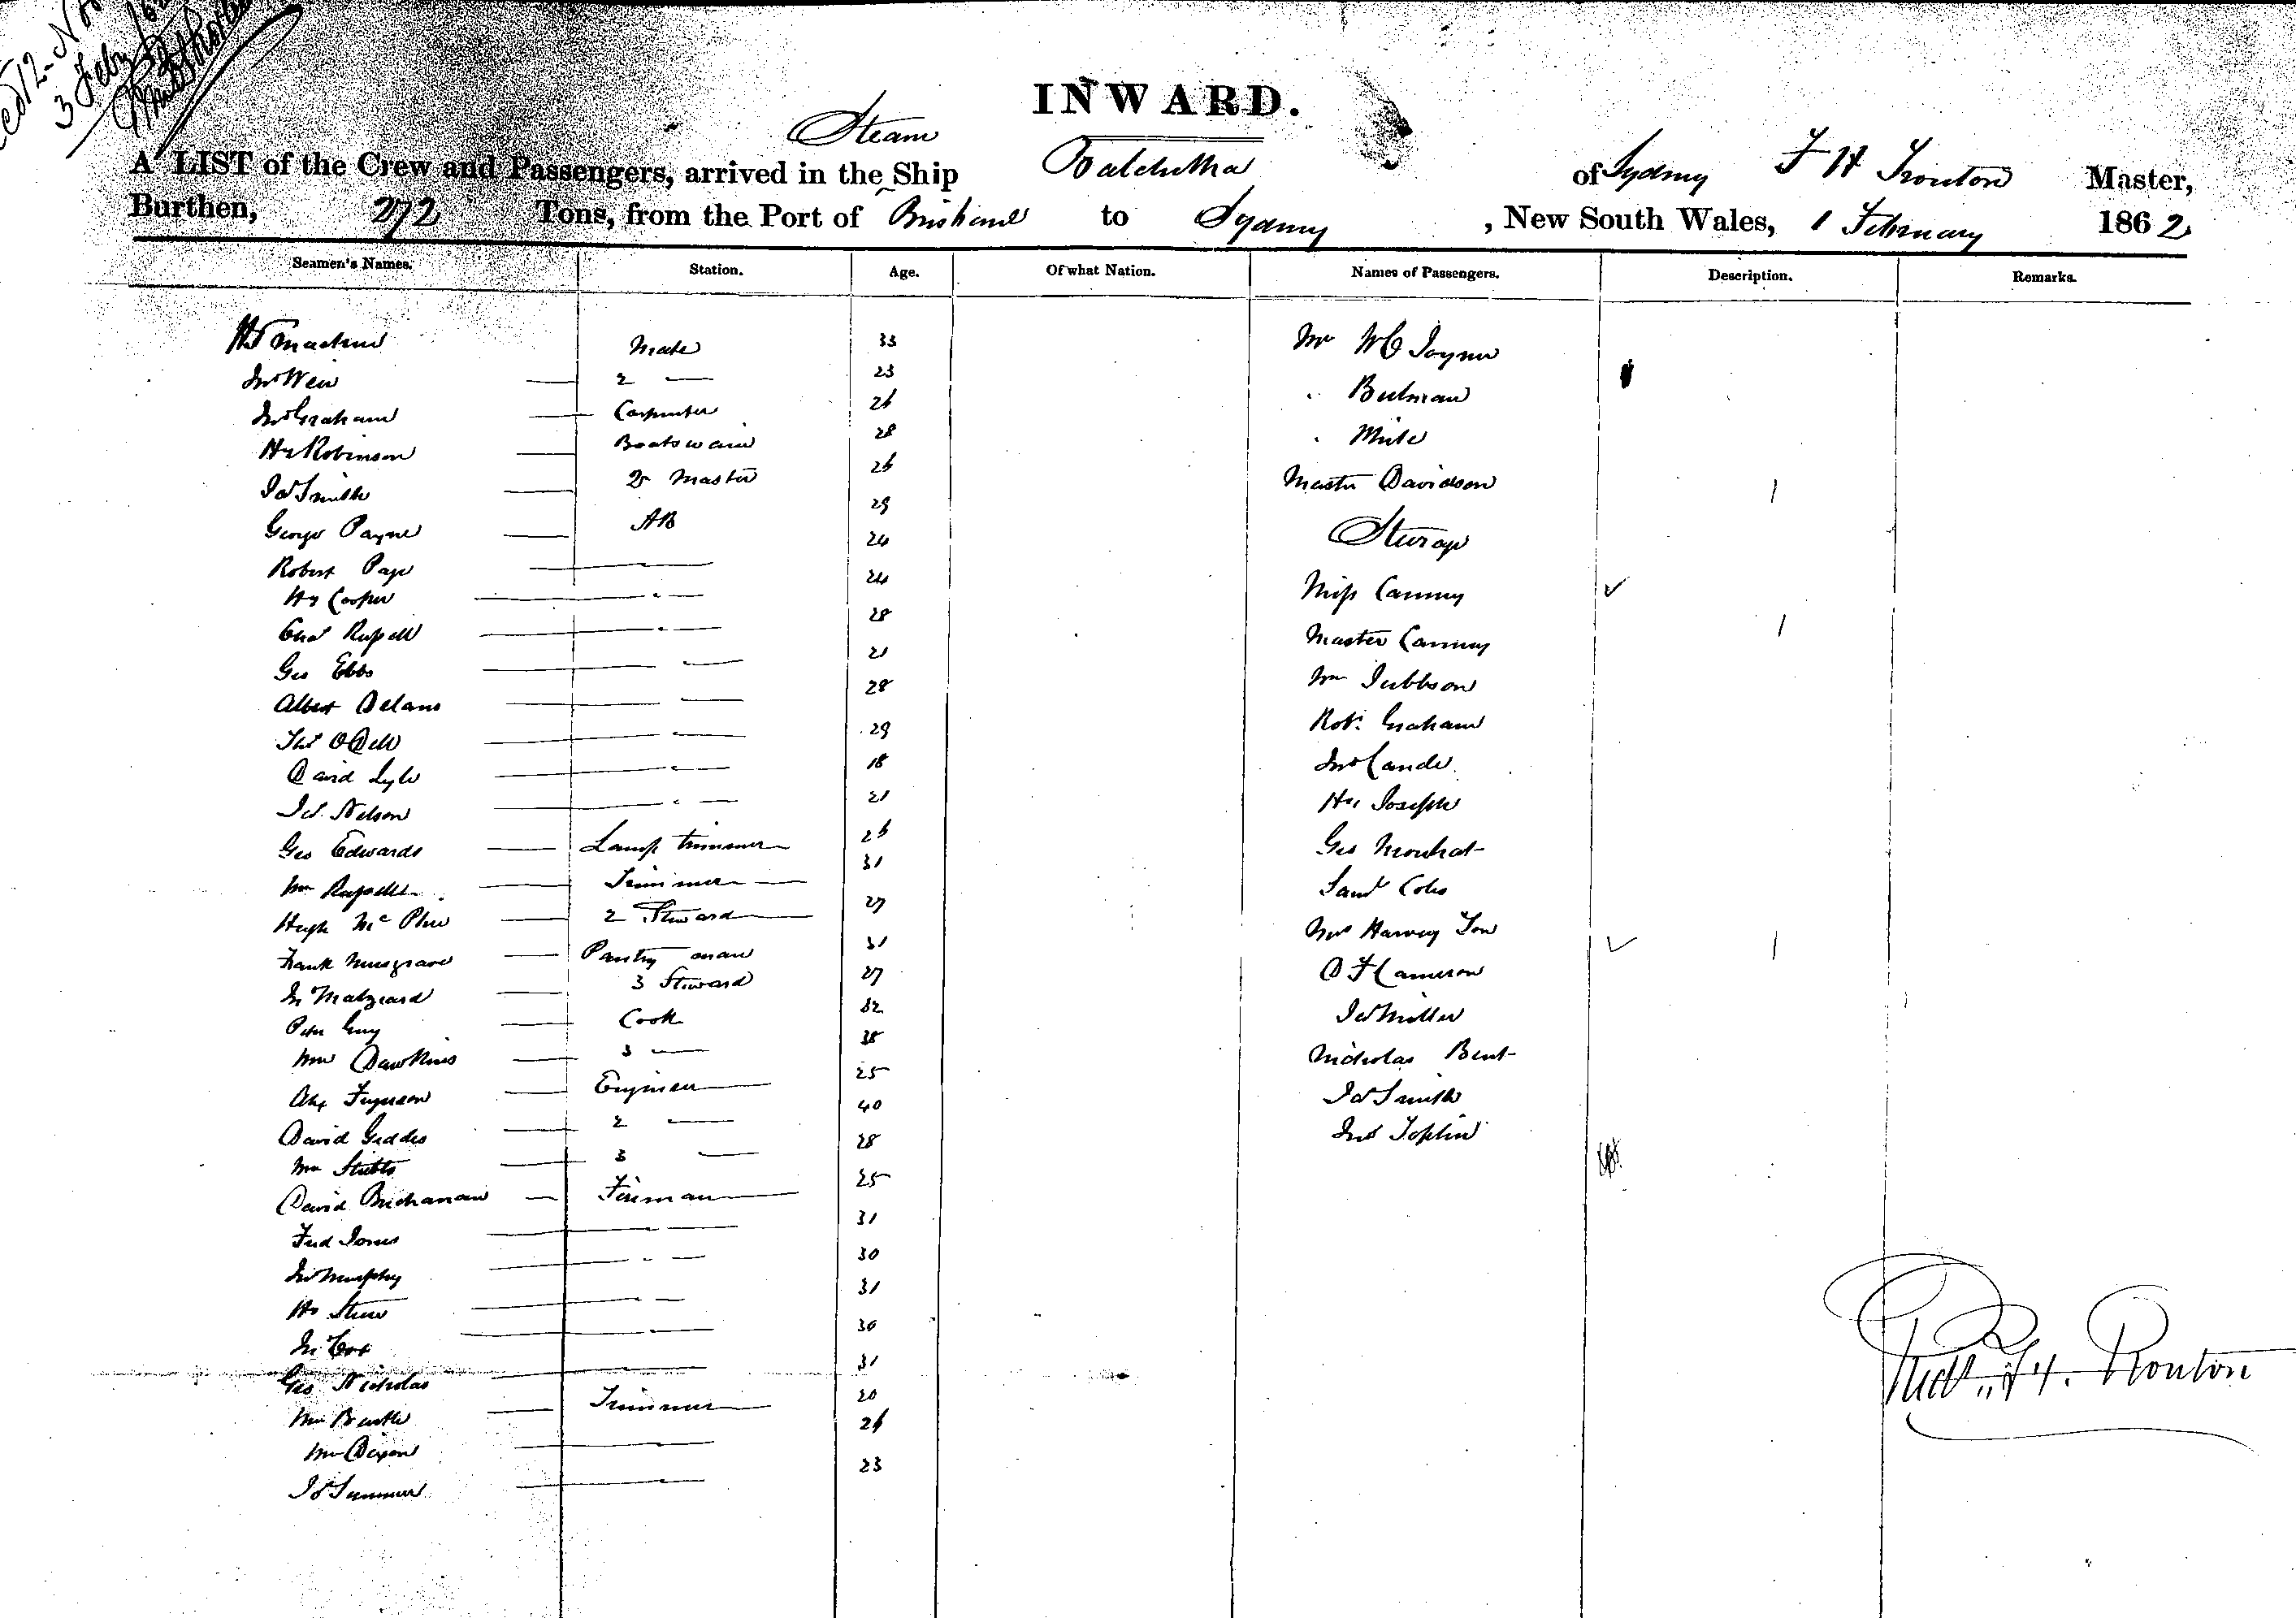 3 Feby /62
INWARD.
Steam
A LIST of the Crew and Passengers, arrived in the Ship of Sydney F H Trouton Master,
Burthen, 272 Tons, from the Port of Brisbane to Sydney, New South Wales, 1 February 1862
Seamen's Names. Station. Age. Of what Nation. Names of Passengers. Description. Remarks.
Mate 33 Mr W C Joyner
Jno Weir 2 — 23 " Bulman
Jno Graham Carpenter 26
Hy Robinson Boatswain 28 Master Davidson 1
Jas Smith Qr Master 26 Steerage
George Payne AB 29 Miss Canny
Robert Page " 24 Master Canny 1
Hy Cooper " 24 Wm Jubbson
Chas Russell " 28 Robt Graham
Geo Ebbs " 21 Jno
Albert Delano " 28 Hy Joseph
Thos ODell " 29 Geo
David Lyle " 18 Saml Coles
Jas Nelson " 21 Mrs Harvey Son 1
Geo Edwards Lamp trimmer 26 D F Cameron
Wm Russell Trimmer 31 Jas Miller
Hugh McPhee 2 Steward 27 Nicholas Bent
Frank Musgrave Pantry man 31 Jas Smith
3 Steward 27 Jno Joplin
Peter Guy Cook 32
Wm Dawkins 3 — 38
Alex Ferguson Engineer 25
David Geddes 2 — 40
Wm Stubbs 3 — 28
David Buchanan Fireman 25
Fred Jones " 31
Jno Murphy " 30
" 31
Jn Cox " 30
Geo Nicholas " 31
Wm Trimmer 20
Wm Dixon " 26
Jas Summer " 23
Fredk H. Trouton